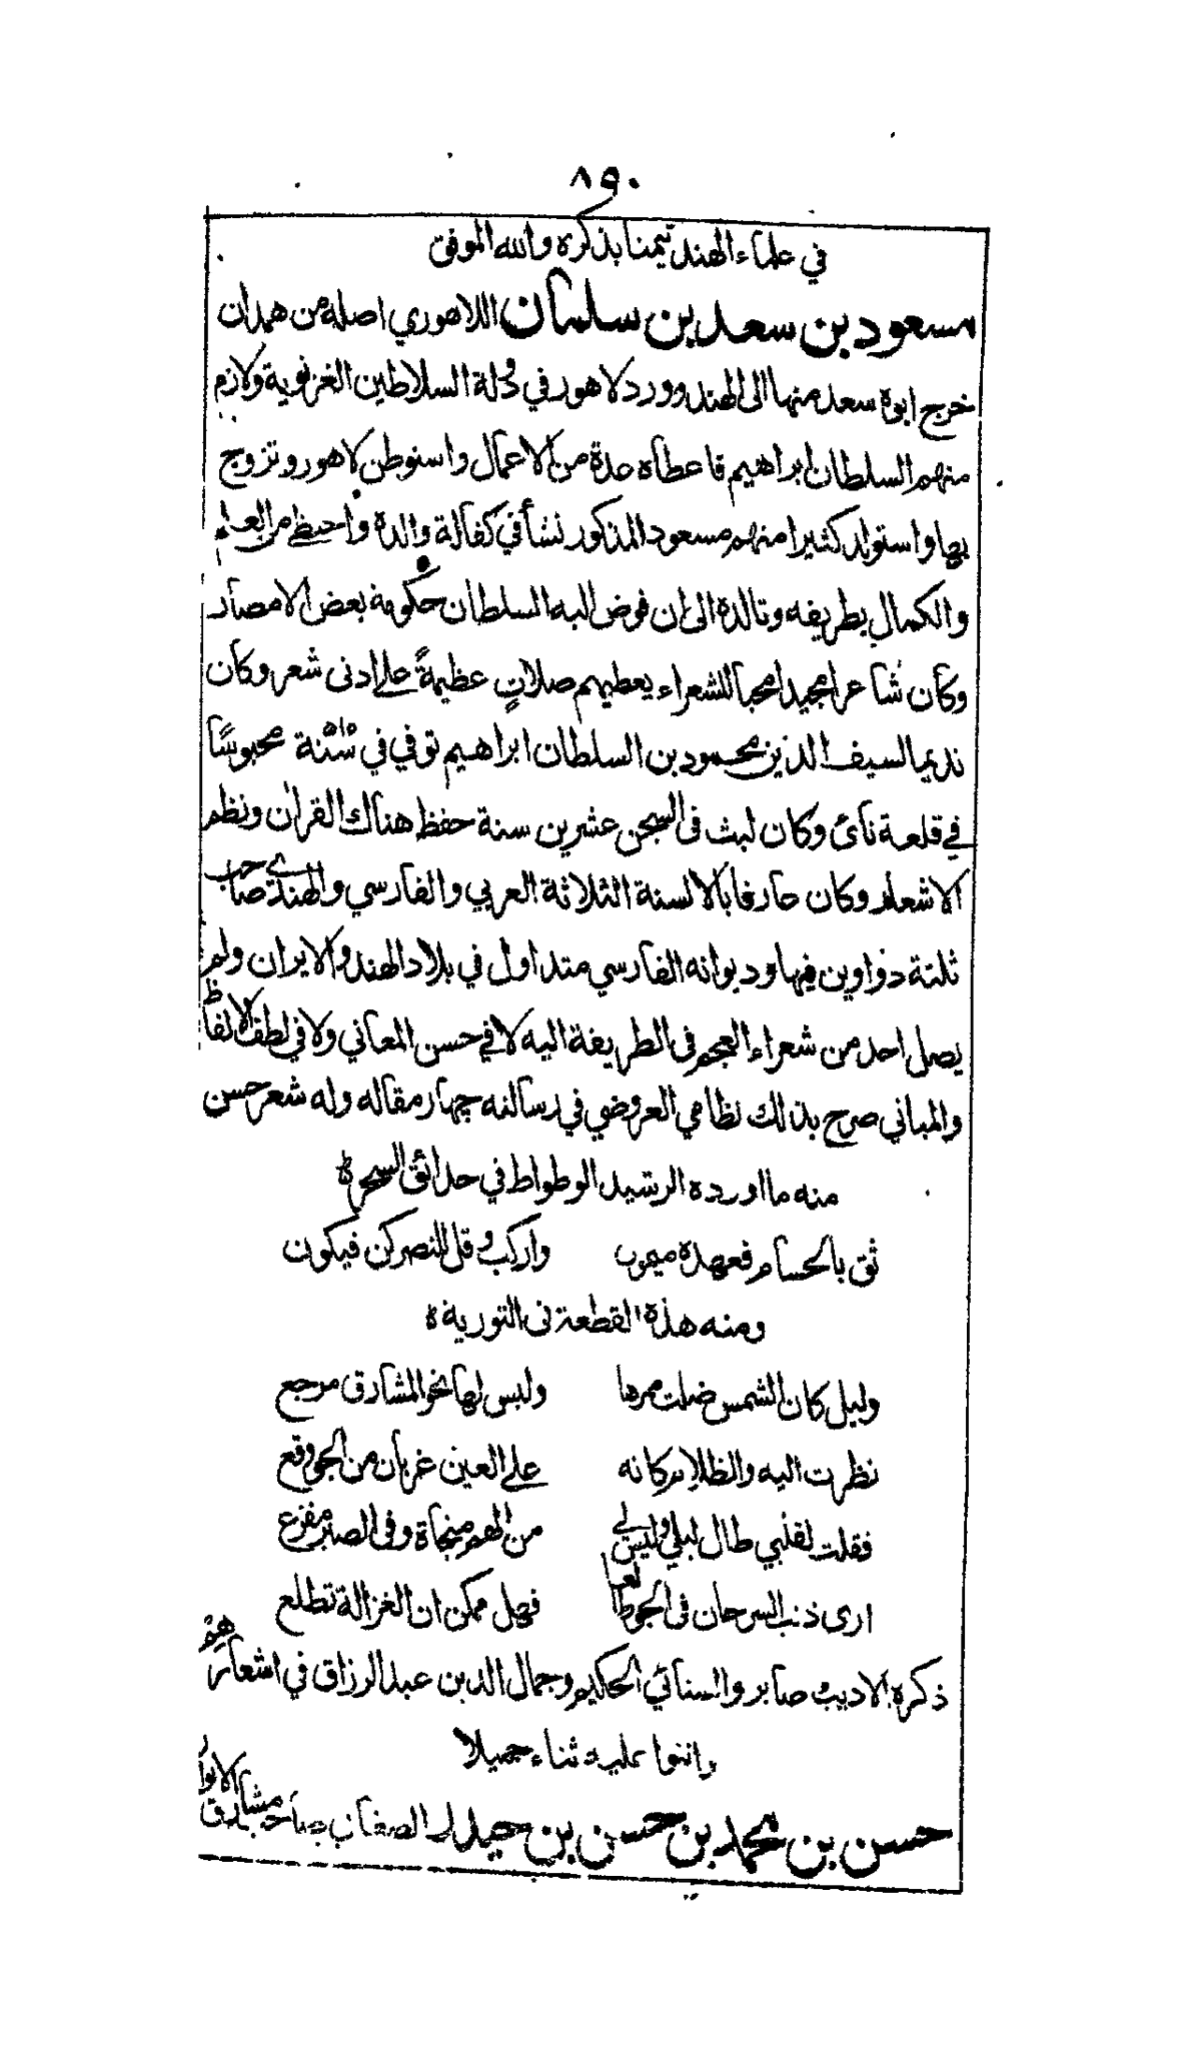 ٨٩٠
في علماء الهند تيمنا بذكره والله الموفق
مسعود بن سعد بن سلمان اللاهوري اصله من همدان
خرج ابوه سعد منها الى الهند وورد لاهور في دولة السلاطين الغزنوية ولازم
منهم السلطان ابراهيم فاعطاه عدة من الاعمال واستوطن لاهور وتزوج
بها واستولد كثيرا منهم مسعود المذكور نشأ في كفالة والده واحتظ من العلم
والكمال بطريفه وتالده الى ان فوض اليه السلطان حكومة بعض الامصار
وكان شاعرا مجيدا محبا للشعراء يعطيهم صلات عظيمة على ادنى شعر وكان
نديما لسيف الدين محمود بن السلطان ابراهيم توفي في سنة محبوسًا
في قلعة نائ وكان لبث فى السجن عشرين سنة حفظ هناك القران ونظم
الاشعار وكان عارفا بالالسنة الثلاثة العربي والفارسي والهندي صاحب
ثلثة دواوين فيها وديوانه الفارسي متداول في بلاد الهند والايران ولم
يصل احد من شعراء العجم فى الطريقة اليه لا في حسن المعاني ولا في لطف الالفاظ
والمباني صرح بذلك نظامي العروضي في رسالته چهار مقاله وله شعر حسن
منه ما اورده الرشيد الوطواط في حدائق السحر
ثق بالحسام فعهده ميمون واركب وقل للنصر كن فيكون
ومنه هذه القطعة فى التورية
وليل كان الشمس ضلت ممرها وليس لها نحو المشارق مرجع
نظرت اليه والظلام كانه على العين غربان من الجو وقع
فقلت لقلبي طال ليلي وليس لي من الهم منجاة وفى الصبر مفزع
ارى ذنب السرحان فى الجو طالعا فهل ممكن ان الغزالة تطلع
ذكره الاديب صابر والسنائي الحكيم وجمال الدين عبد الرزاق في اشعارهم
واثنوا عليه ثناء جميلا
حسن بن محمد بن حسن بن حيدر الصغاني صاحب مشارق الانوار